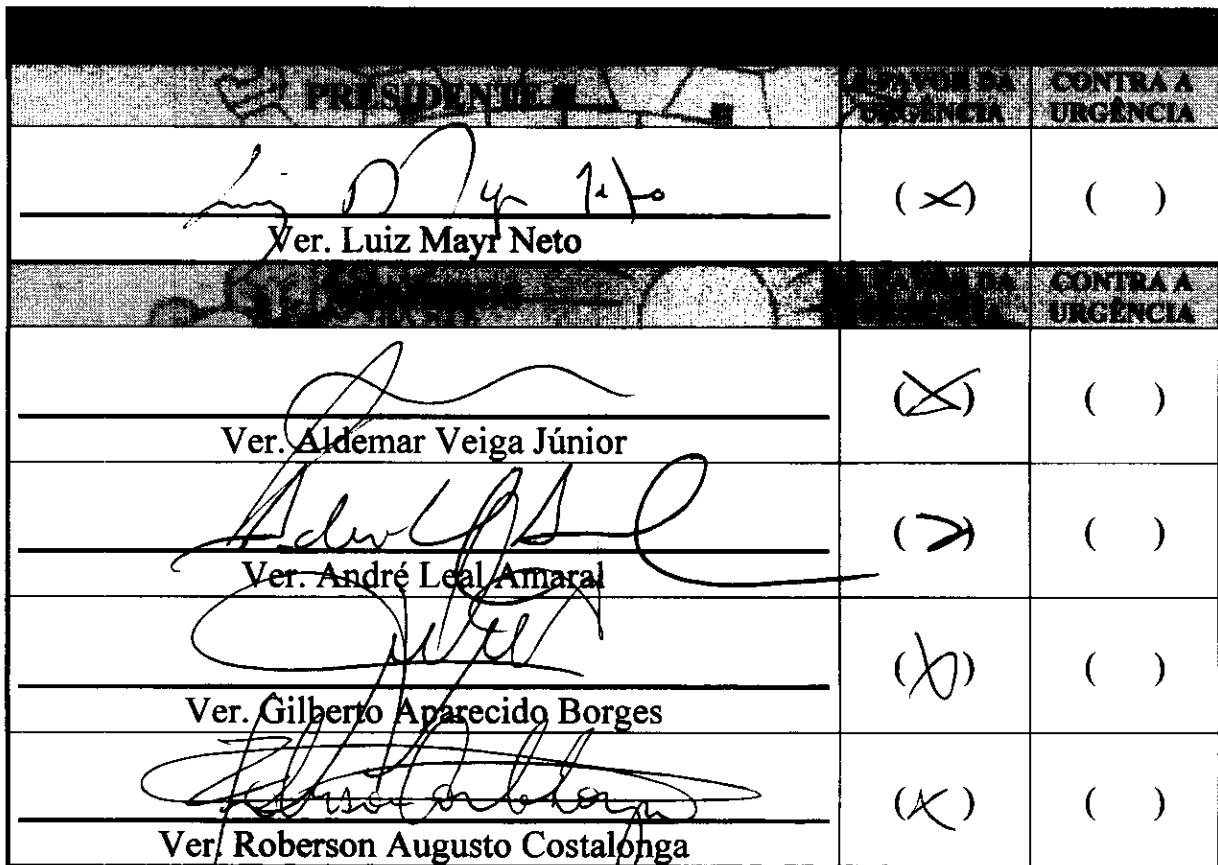 PRESIDENTE
A FAVOR DA
URGÊNCIA
CONTRA A
URGÊNCIA
(X)
( )
Ver. Luiz Mayr Neto
CONTRA A
URGÊNCIA
(X)
( )
Ver. Aldemar Veiga Júnior
(X)
( )
Ver. André Leal Amaral
(X)
( )
Ver. Gilberto Aparecido Borges
(X)
( )
Ver. Roberson Augusto Costalonga